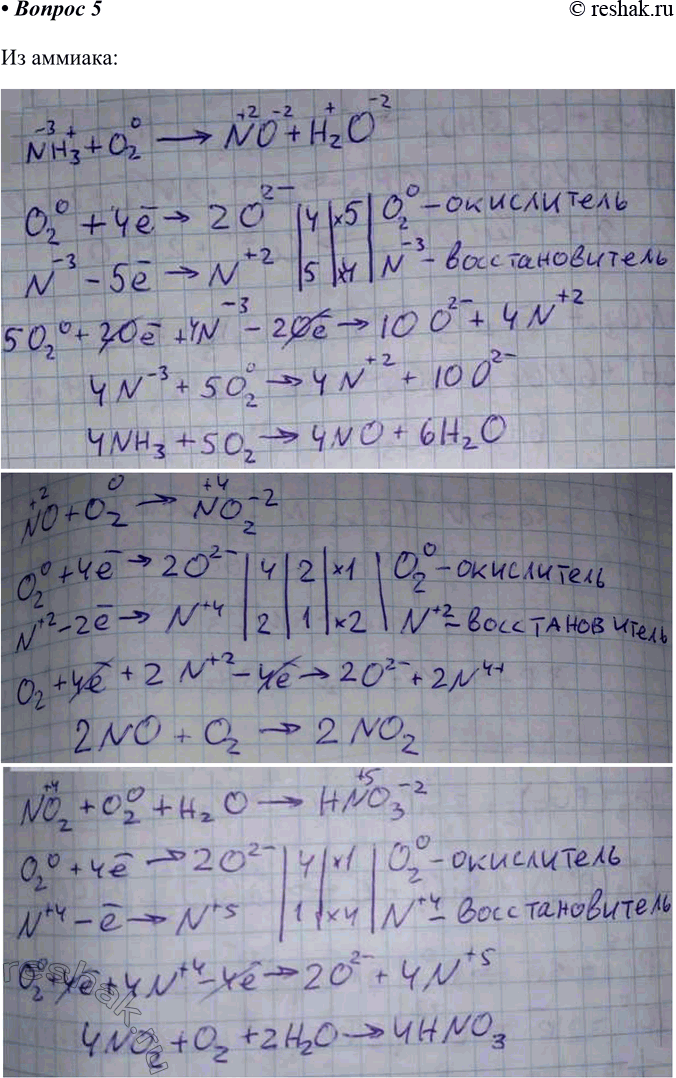 • Вопрос 5 © reshak.ru
Из аммиака:
-3 + 0 +2 -2 + -2
NH₃ + O₂ → NO + H₂O
O₂⁰ + 4ē → 2O²⁻ | 4 | ×5 | O₂⁰ – окислитель
N⁻³ - 5ē → N⁺² | 5 | ×4 | N⁻³ – восстановитель
5O₂⁰ + 20ē + 4N⁻³ - 20ē → 10O²⁻ + 4N⁺²
4N⁻³ + 5O₂⁰ → 4N⁺² + 10O²⁻
4NH₃ + 5O₂ → 4NO + 6H₂O
+2 0 +4 -2
NO + O₂ → NO₂
O₂⁰ + 4ē → 2O²⁻ | 4 | 2 | ×1 | O₂⁰ – окислитель
N⁺² - 2ē → N⁺⁴ | 2 | 1 | ×2 | N⁺² – восстановитель
O₂ + 4ē + 2N⁺² - 4ē → 2O²⁻ + 2N⁴⁺
2NO + O₂ → 2NO₂
+4 0 +5 -2
NO₂ + O₂ + H₂O → HNO₃
O₂⁰ + 4ē → 2O²⁻ | 4 | ×1 | O₂⁰ – окислитель
N⁺⁴ - ē → N⁺⁵ | 1 | ×4 | N⁺⁴ – восстановитель
O₂⁰ + 4ē + 4N⁺⁴ - 4ē → 2O²⁻ + 4N⁺⁵
4NO₂ + O₂ + 2H₂O → 4HNO₃
reshak.ru